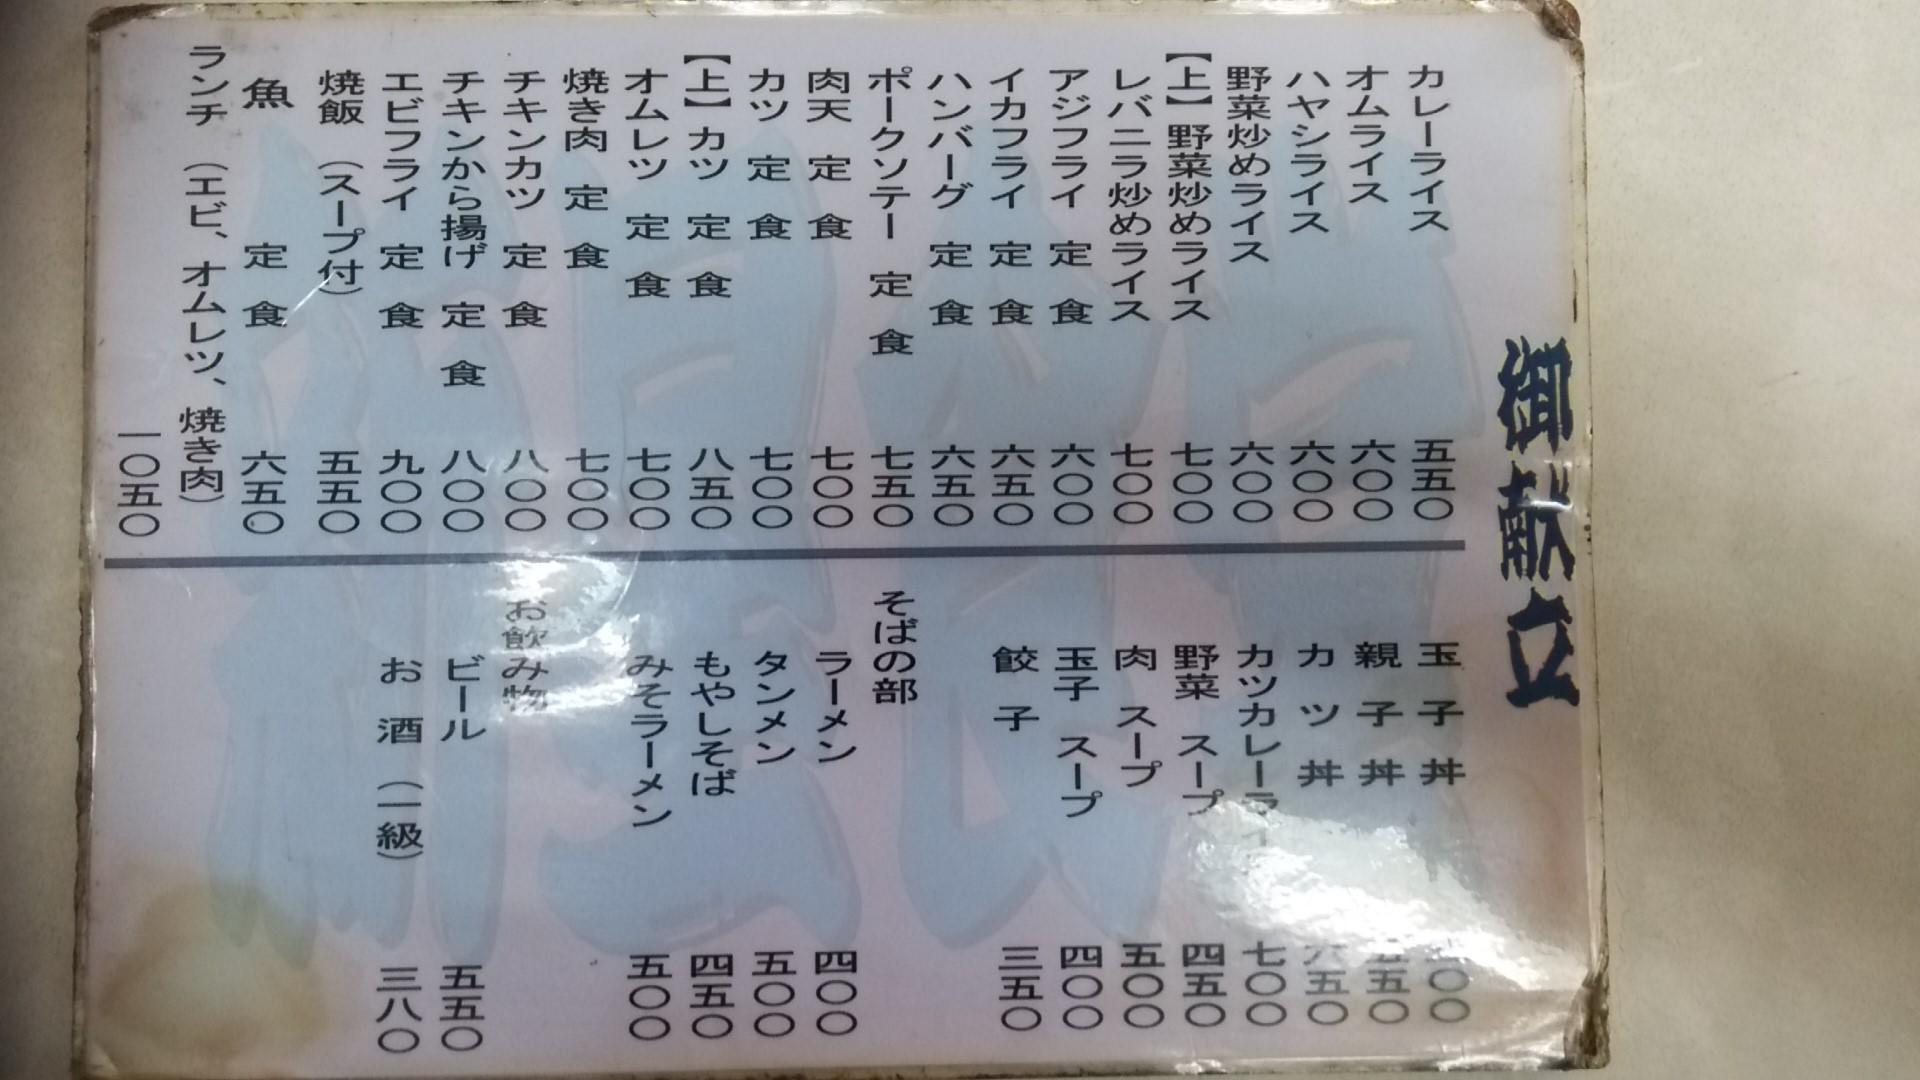 御献立
カレーライス 五五〇
オムライス 六〇〇
ハヤシライス 六〇〇
野菜炒めライス 六〇〇
【上】野菜炒めライス 七〇〇
レバニラ炒めライス 七〇〇
アジフライ 定食 六〇〇
イカフライ 定食 六五〇
ハンバーグ 定食 六五〇
ポークソテー 定食 七五〇
肉天 定食 七〇〇
カツ 定食 七〇〇
【上】カツ 定食 八五〇
オムレツ 定食 七〇〇
焼き肉 定食 七〇〇
チキンカツ 定食 八〇〇
チキンから揚げ 定食 八〇〇
エビフライ 定食 九〇〇
焼飯 (スープ付) 五五〇
魚 定食 六五〇
ランチ (エビ、オムレツ、焼き肉)
一〇五〇
玉子丼 〇〇
親子丼 五五〇
カツ丼 六五〇
カツカレーライ 七〇〇
野菜 スープ 四五〇
肉 スープ 五〇〇
玉子 スープ 四〇〇
餃子 三五〇
そばの部
ラーメン 四〇〇
タンメン 五〇〇
もやしそば 四五〇
みそラーメン 五〇〇
お飲み物
ビール 五五〇
お酒 (一級) 三八〇